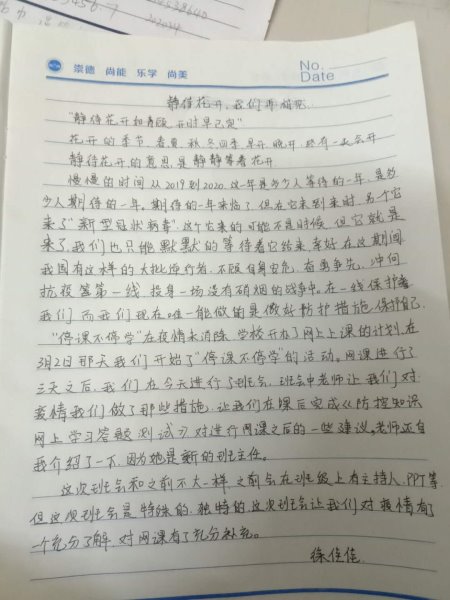 崇德 尚能 乐学 尚美
No.
Date
静待花开,我们再相见.
"静待花开和青
开时早已定"
花开的季节,春夏秋冬四季,早开,晚开,终有一天会开
静待花开的意思是静静等着花开
慢慢的时间从2019到2020,这一年是多少人等待的一年,是多
少人期待的一年,期待的一年来临了,但在它未到来时,另个它
来了"新型冠状病毒",这个它来的可能不是时候,但它就是
来了,我们也只能默默的等待着它结束,幸好在这期间
我国有这样的大批逆行者,不顾自身安危,奋勇争先,冲向
抗疫第一线,投身一场没有硝烟的战争中,在一线保护着
我们,而我们现在唯一能做的是做好防护措施,保护自己.
"停课不停学"在疫情未消除,学校开办了网上上课的计划,在
3月2日那天我们开始了"停课不停学"的活动,网课进行了
三天之后,我们在今天进行了班会,班会中老师让我们对
疫情我们做了那些措施,让我们在课后完成《防控知识
网上学习答题测试》对进行网课之后的一些建议,老师还自
我介绍了一下,因为她是新的班主任。
这次班会和之前不大一样,之前会在班级上有主持人,PPT等
但这次班会是特殊的,独特的,这次班会让我们对疫情有了
一个充分了解,对网课有了充分补充。
徐佳佳